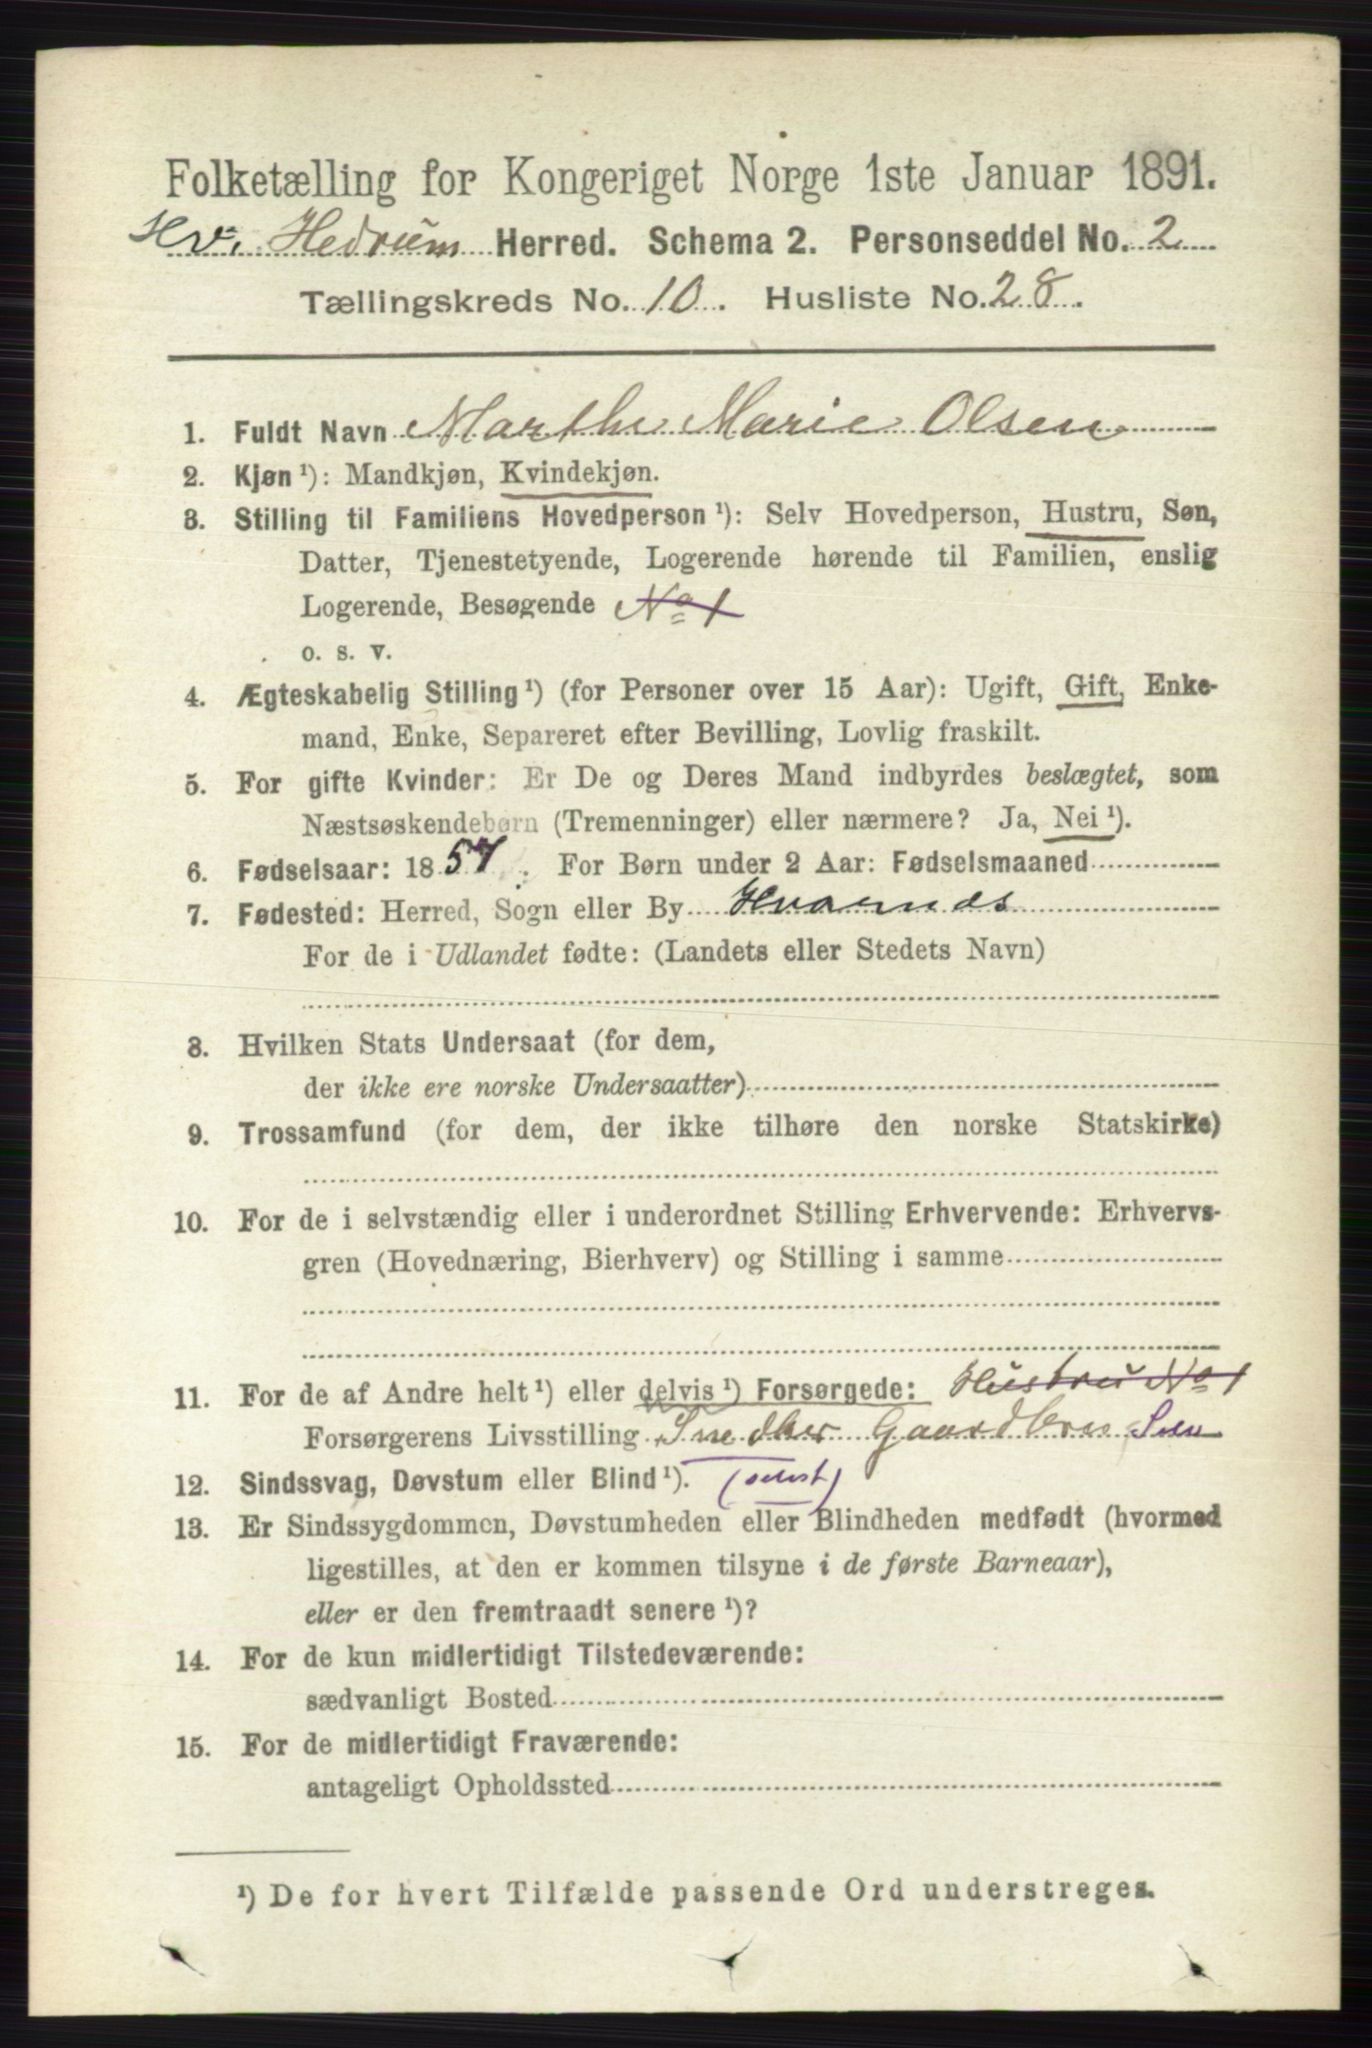 Folketælling for Kongeriget Norge 1ste Januar 1891.
Hv. Hedrum Herred. Schema 2. Personseddel No. 2
Tællingskreds No. 10. Husliste No. 28.
1. Fuldt Navn Marthe Marie Olsen
2. Kjøn ¹): Mandkjøn, Kvindekjøn.
3. Stilling til Familiens Hovedperson ¹): Selv Hovedperson, Hustru, Søn,
Datter, Tjenestetyende, Logerende hørende til Familien, enslig
Logerende, Besøgende No 1
o. s. v.
4. Ægteskabelig Stilling ¹) (for Personer over 15 Aar): Ugift, Gift, Enke-
mand, Enke, Separeret efter Bevilling, Lovlig fraskilt.
5. For gifte Kvinder: Er De og Deres Mand indbyrdes beslægtet, som
Næstsøskendebørn (Tremenninger) eller nærmere? Ja, Nei ¹).
6. Fødselsaar: 1857. For Børn under 2 Aar: Fødselsmaaned
7. Fødested: Herred, Sogn eller By Hvarnæs
For de i Udlandet fødte: (Landets eller Stedets Navn)
8. Hvilken Stats Undersaat (for dem,
der ikke ere norske Undersaatter)
9. Trossamfund (for dem, der ikke tilhøre den norske Statskirke)
10. For de i selvstændig eller i underordnet Stilling Erhvervende: Erhvervs-
gren (Hovednæring, Bierhverv) og Stilling i samme
11. For de af Andre helt ¹) eller delvis ¹) Forsørgede: Hustru No 1
Forsørgerens Livsstilling Snedker Gaardbru
12. Sindssvag, Døvstum eller Blind ¹).
13. Er Sindssygdommen, Døvstumheden eller Blindheden medfødt (hvormed
ligestilles, at den er kommen tilsyne i de første Barneaar),
eller er den fremtraadt senere ¹)?
14. For de kun midlertidigt Tilstedeværende:
sædvanligt Bosted
15. For de midlertidigt Fraværende:
antageligt Opholdssted
¹) De for hvert Tilfælde passende Ord understreges.